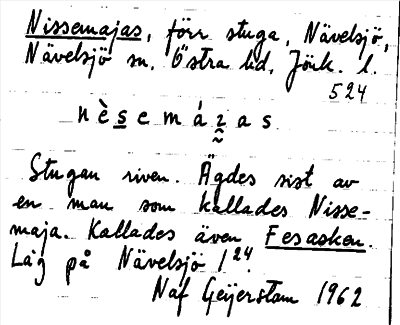 Nissemajas, förr stuga, Nävelsjö,
Nävelsjö sn, Östra hd, Jönk. l.
524
nèsemáɿas
Stugan riven. Ägdes sist av
en man som kallades Nisse-
maja. Kallades även Fesasken.
Låg på Nävelsjö 1²⁴.
Naf Geijerstam 1962